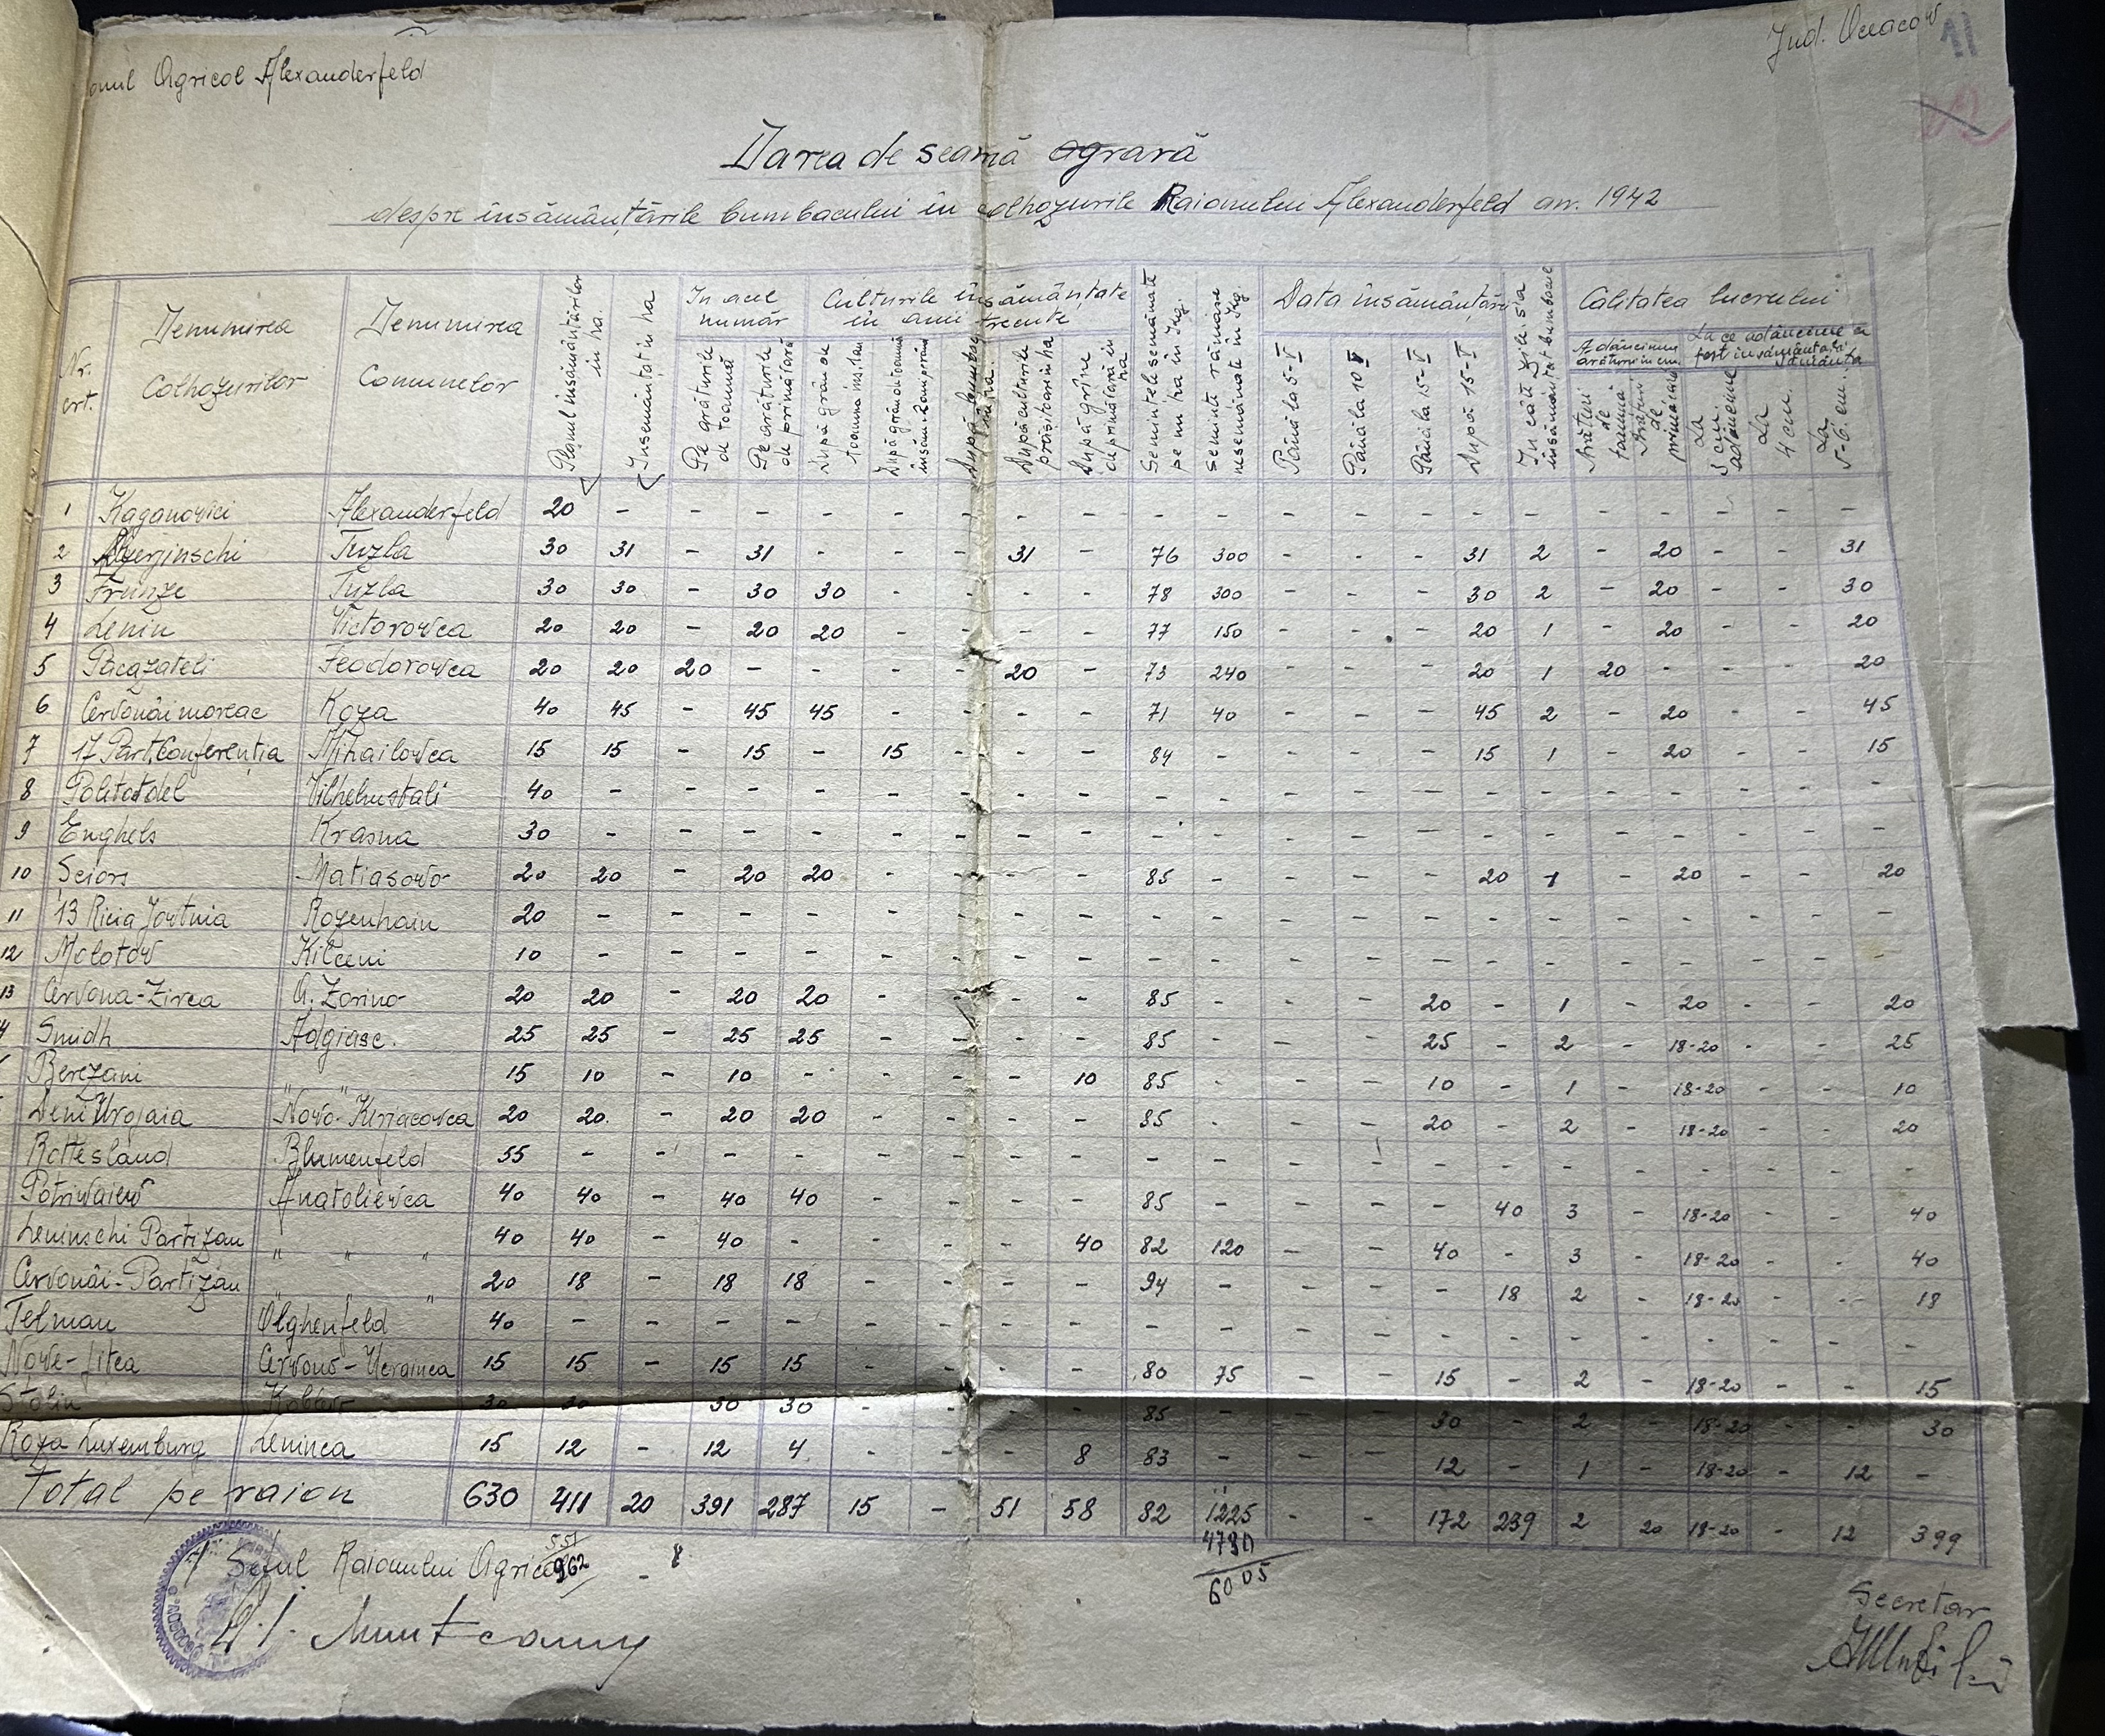 Jud. Oceacow 11
onul Agricol Alexanderfeld
12
Darea de seamă agrară
despre însămânțările bumbacului în colhozurile Raionului Alexanderfeld an. 1942
Nr. crt. | Denumirea Colhozurilor | Denumirea Comunelor | Planul însămânțărilor în ha. | Însemânțat în ha | În acel număr | Culturile însămânțate în anii trecute | Semințele semănate pe un ha în kg. | Semințe rămase nesemănate în kg. | Data însămânțării | În câte zile s'a însămânțat bumbacul | Calitatea lucrului
Pe arăturile de toamnă | Pe arăturile de primăvară | După grâu de toamnă | După grâu de toamnă | După bumbac în ha | După culturile prășitoare în ha | După grîne de primăvară în ha | Până la 5-V | Până la 10 V | Până la 15-V | După 15-V | Adâncimea arăturii în cm. | La ce adâncime a fost însămânțată sămânța
Arături de toamnă | Arături de primăvară | La 3 cm. adâncime | La 4 cm. | La 5-6. cm.
1 Kaganovici Alexanderfeld 20 - - - - - - - - - - - - - - - - - - - -
2 Dzerjinschi Tuzla 30 31 - 31 - - - 31 - 76 300 - - - 31 2 - 20 - - 31
3 Frunze Tuzla 30 30 - 30 30 - - - - 78 300 - - - 30 2 - 20 - - 30
4 Lenin Victorowca 20 20 - 20 20 - - - - 77 150 - - - 20 1 - 20 - - 20
5 Pocazateli Feodorowca 20 20 20 - - - - 20 - 73 240 - - - 20 1 20 - - - 20
6 Cervonâi moreac Roza 40 45 - 45 45 - - - - 71 40 - - - 45 2 - 20 - - 45
7 17 Part.Conferenția Mihailowca 15 15 - 15 - 15 - - - 84 - - - - 15 1 - 20 - - 15
8 Politotdel Vilhelmstali 40 - - - - - - - - - - - - - - - - - - - -
9 Enghels Krasna 30 - - - - - - - - - - - - - - - - - - - -
10 Șciors Matiasowo 20 20 - 20 20 - - - - 85 - - - - 20 1 - 20 - - 20
11 13 Ricia Jowtnia Rozenhain 20 - - - - - - - - - - - - - - - - - - - -
12 Molotow Kilceni 10 - - - - - - - - - - - - - - - - - - - -
13 Cervona-Zirca A. Zorino 20 20 - 20 20 - - - - 85 - - - 20 - 1 - 20 - - 20
4 Smidh Adgiasc. 25 25 - 25 25 - - - - 85 - - - 25 - 2 - 18-20 - - 25
Berezani " " 15 10 - 10 - - - - 10 85 - - - 10 - 1 - 18-20 - - 10
Deni Urojaia Nowo-Kiriacowca 20 20. - 20 20 - - - - 85 - - - 20 - 2 - 18-20 - - 20
Rottesland Blumenfeld 55 - - - - - - - - - - - - - - - - - - - -
Potriwaiew Anatoliewca 40 40 - 40 40 - - - - 85 - - - - 40 3 - 18-20 - - 40
Leninschi Partizan " " " 40 40 - 40 - - - - 40 82 120 - - 40 - 3 - 18-20 - - 40
Cervonâi-Partizan " " " 20 18 - 18 18 - - - - 94 - - - - 18 2 - 18-20 - - 18
Telman Olghenfeld 40 - - - - - - - - - - - - - - - - - - - -
Nowe-jitea Cervono-Ucrainca 15 15 - 15 15 - - - - 80 75 - - 15 - 2 - 18-20 - - 15
Stalin 30 30 - 30 30 - - - - 85 - - - 30 - 2 - 18-20 - - 30
Roza Luxemburg Leninca 15 12 - 12 4 - - - 8 83 - - - 12 - 1 - 18-20 - 12 -
Total pe raion 630 411 20 391 287 15 - 51 58 82 1225 - - 172 239 2 20 18-20 - 12 399
Șeful Raionului Agricol
551
962 - 8
4780
6005
Secretar